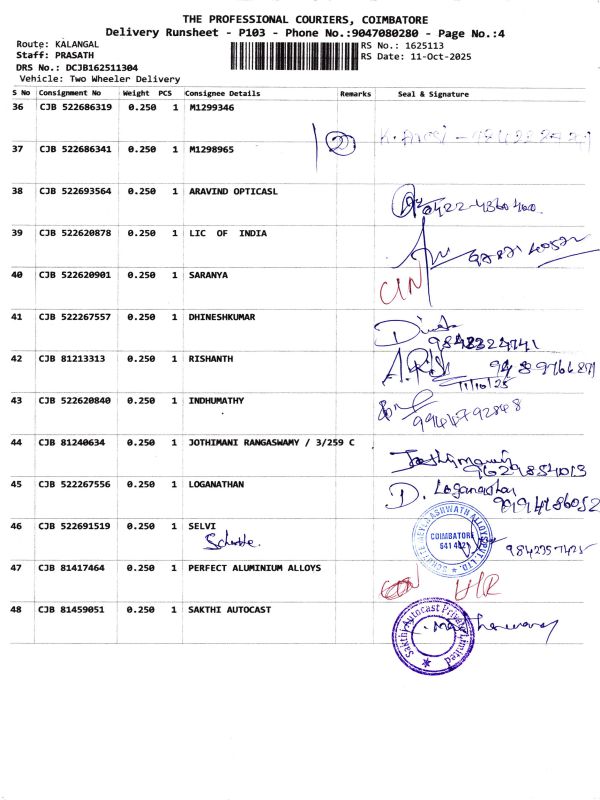 THE PROFESSIONAL COURIERS, COIMBATORE
Delivery Runsheet - P103 - Phone No.:9047080280 - Page No.:4
Route: KALANGAL
Staff: PRASATH
DRS No.: DCJB162511304
Vehicle: Two Wheeler Delivery
RS No.: 1625113
RS Date: 11-Oct-2025
S No Consignment No Weight PCS Consignee Details Remarks Seal & Signature
36 CJB 522686319 0.250 1 M1299346
37 CJB 522686341 0.250 1 M1298965
2
38 CJB 522693564 0.250 1 ARAVIND OPTICASL
0422-4360400
39 CJB 522620878 0.250 1 LIC OF INDIA
40 CJB 522620901 0.250 1 SARANYA
41 CJB 522267557 0.250 1 DHINESHKUMAR
42 CJB 81213313 0.250 1 RISHANTH
11/10/25
43 CJB 522620840 0.250 1 INDHUMATHY
44 CJB 81240634 0.250 1 JOTHIMANI RANGASWAMY / 3/259 C
9629854013
45 CJB 522267556 0.250 1 LOGANATHAN
D. Loganathan
46 CJB 522691519 0.250 1 SELVI
COIMBATORE
47 CJB 81417464 0.250 1 PERFECT ALUMINIUM ALLOYS
48 CJB 81459051 0.250 1 SAKTHI AUTOCAST
Sakthi Autocast Private Limited